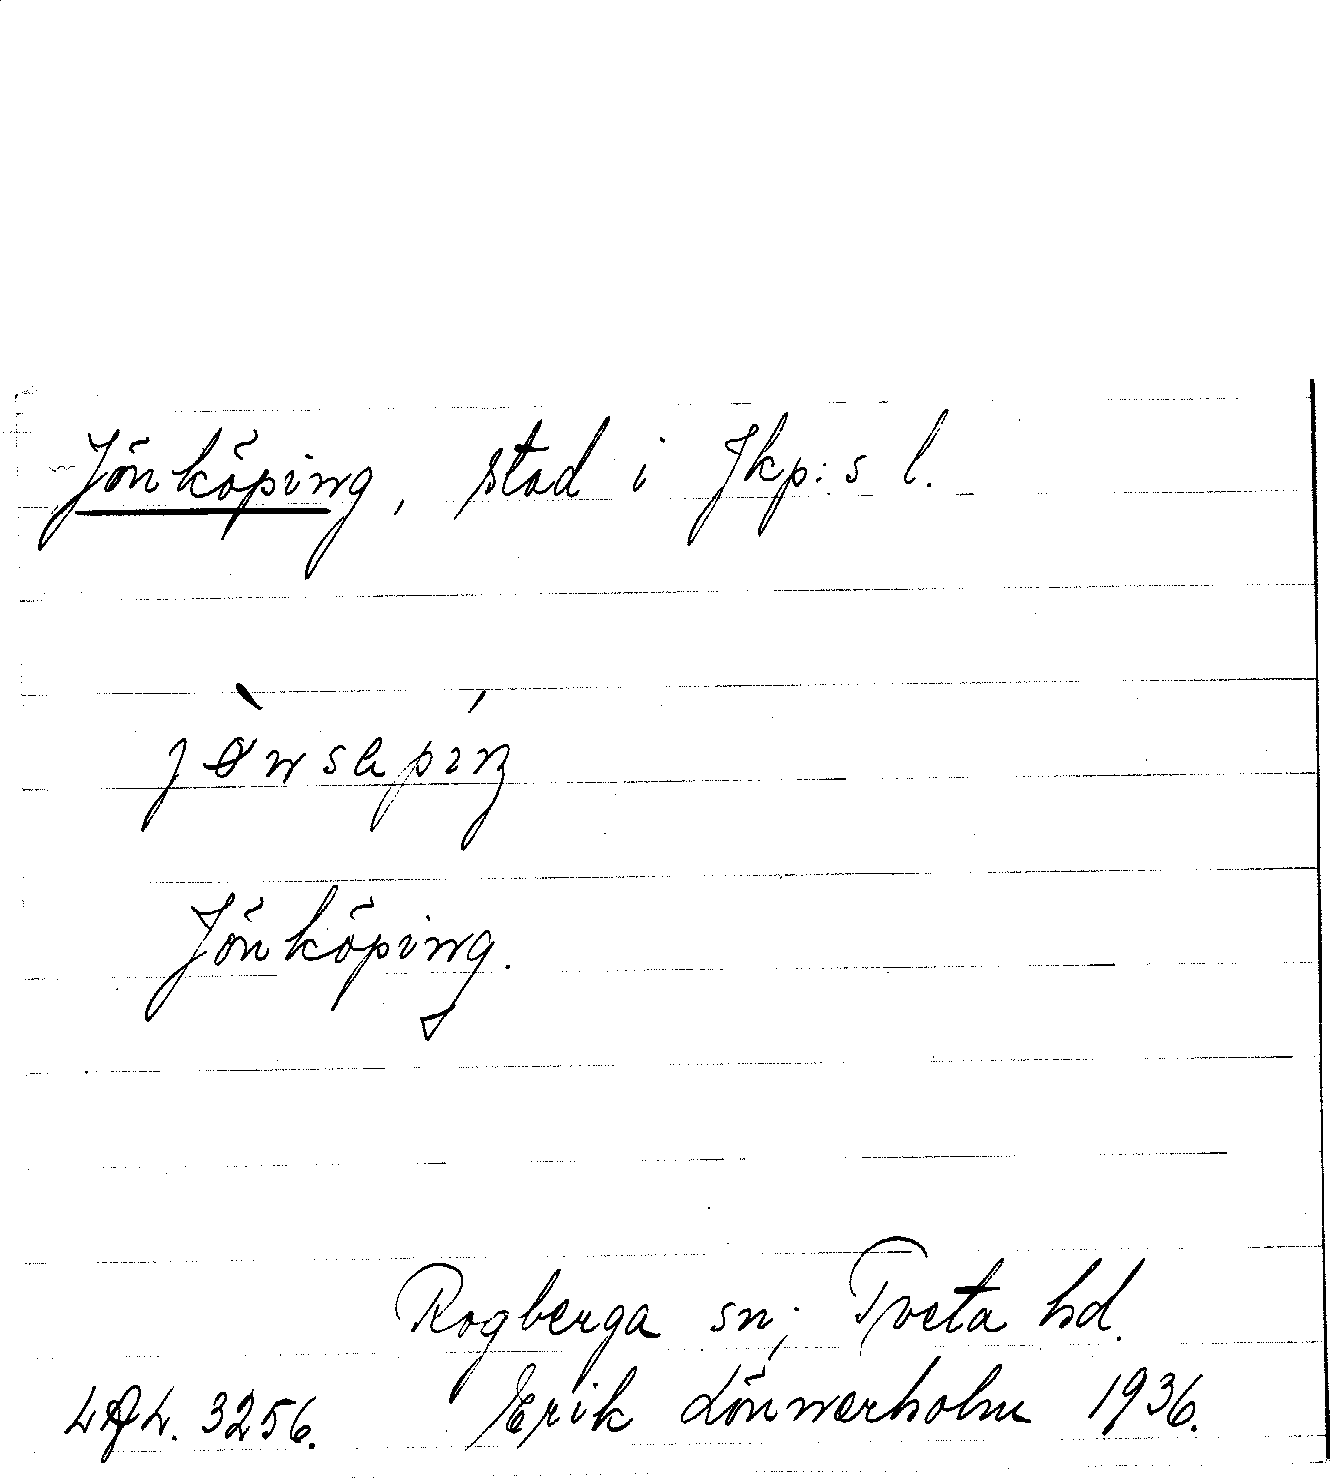 Jönköping, stad i Jkp:s l.
Jönköping.
Rogberga sn; Tveta hd.
Erik Lönnerholm 1936.
3256.